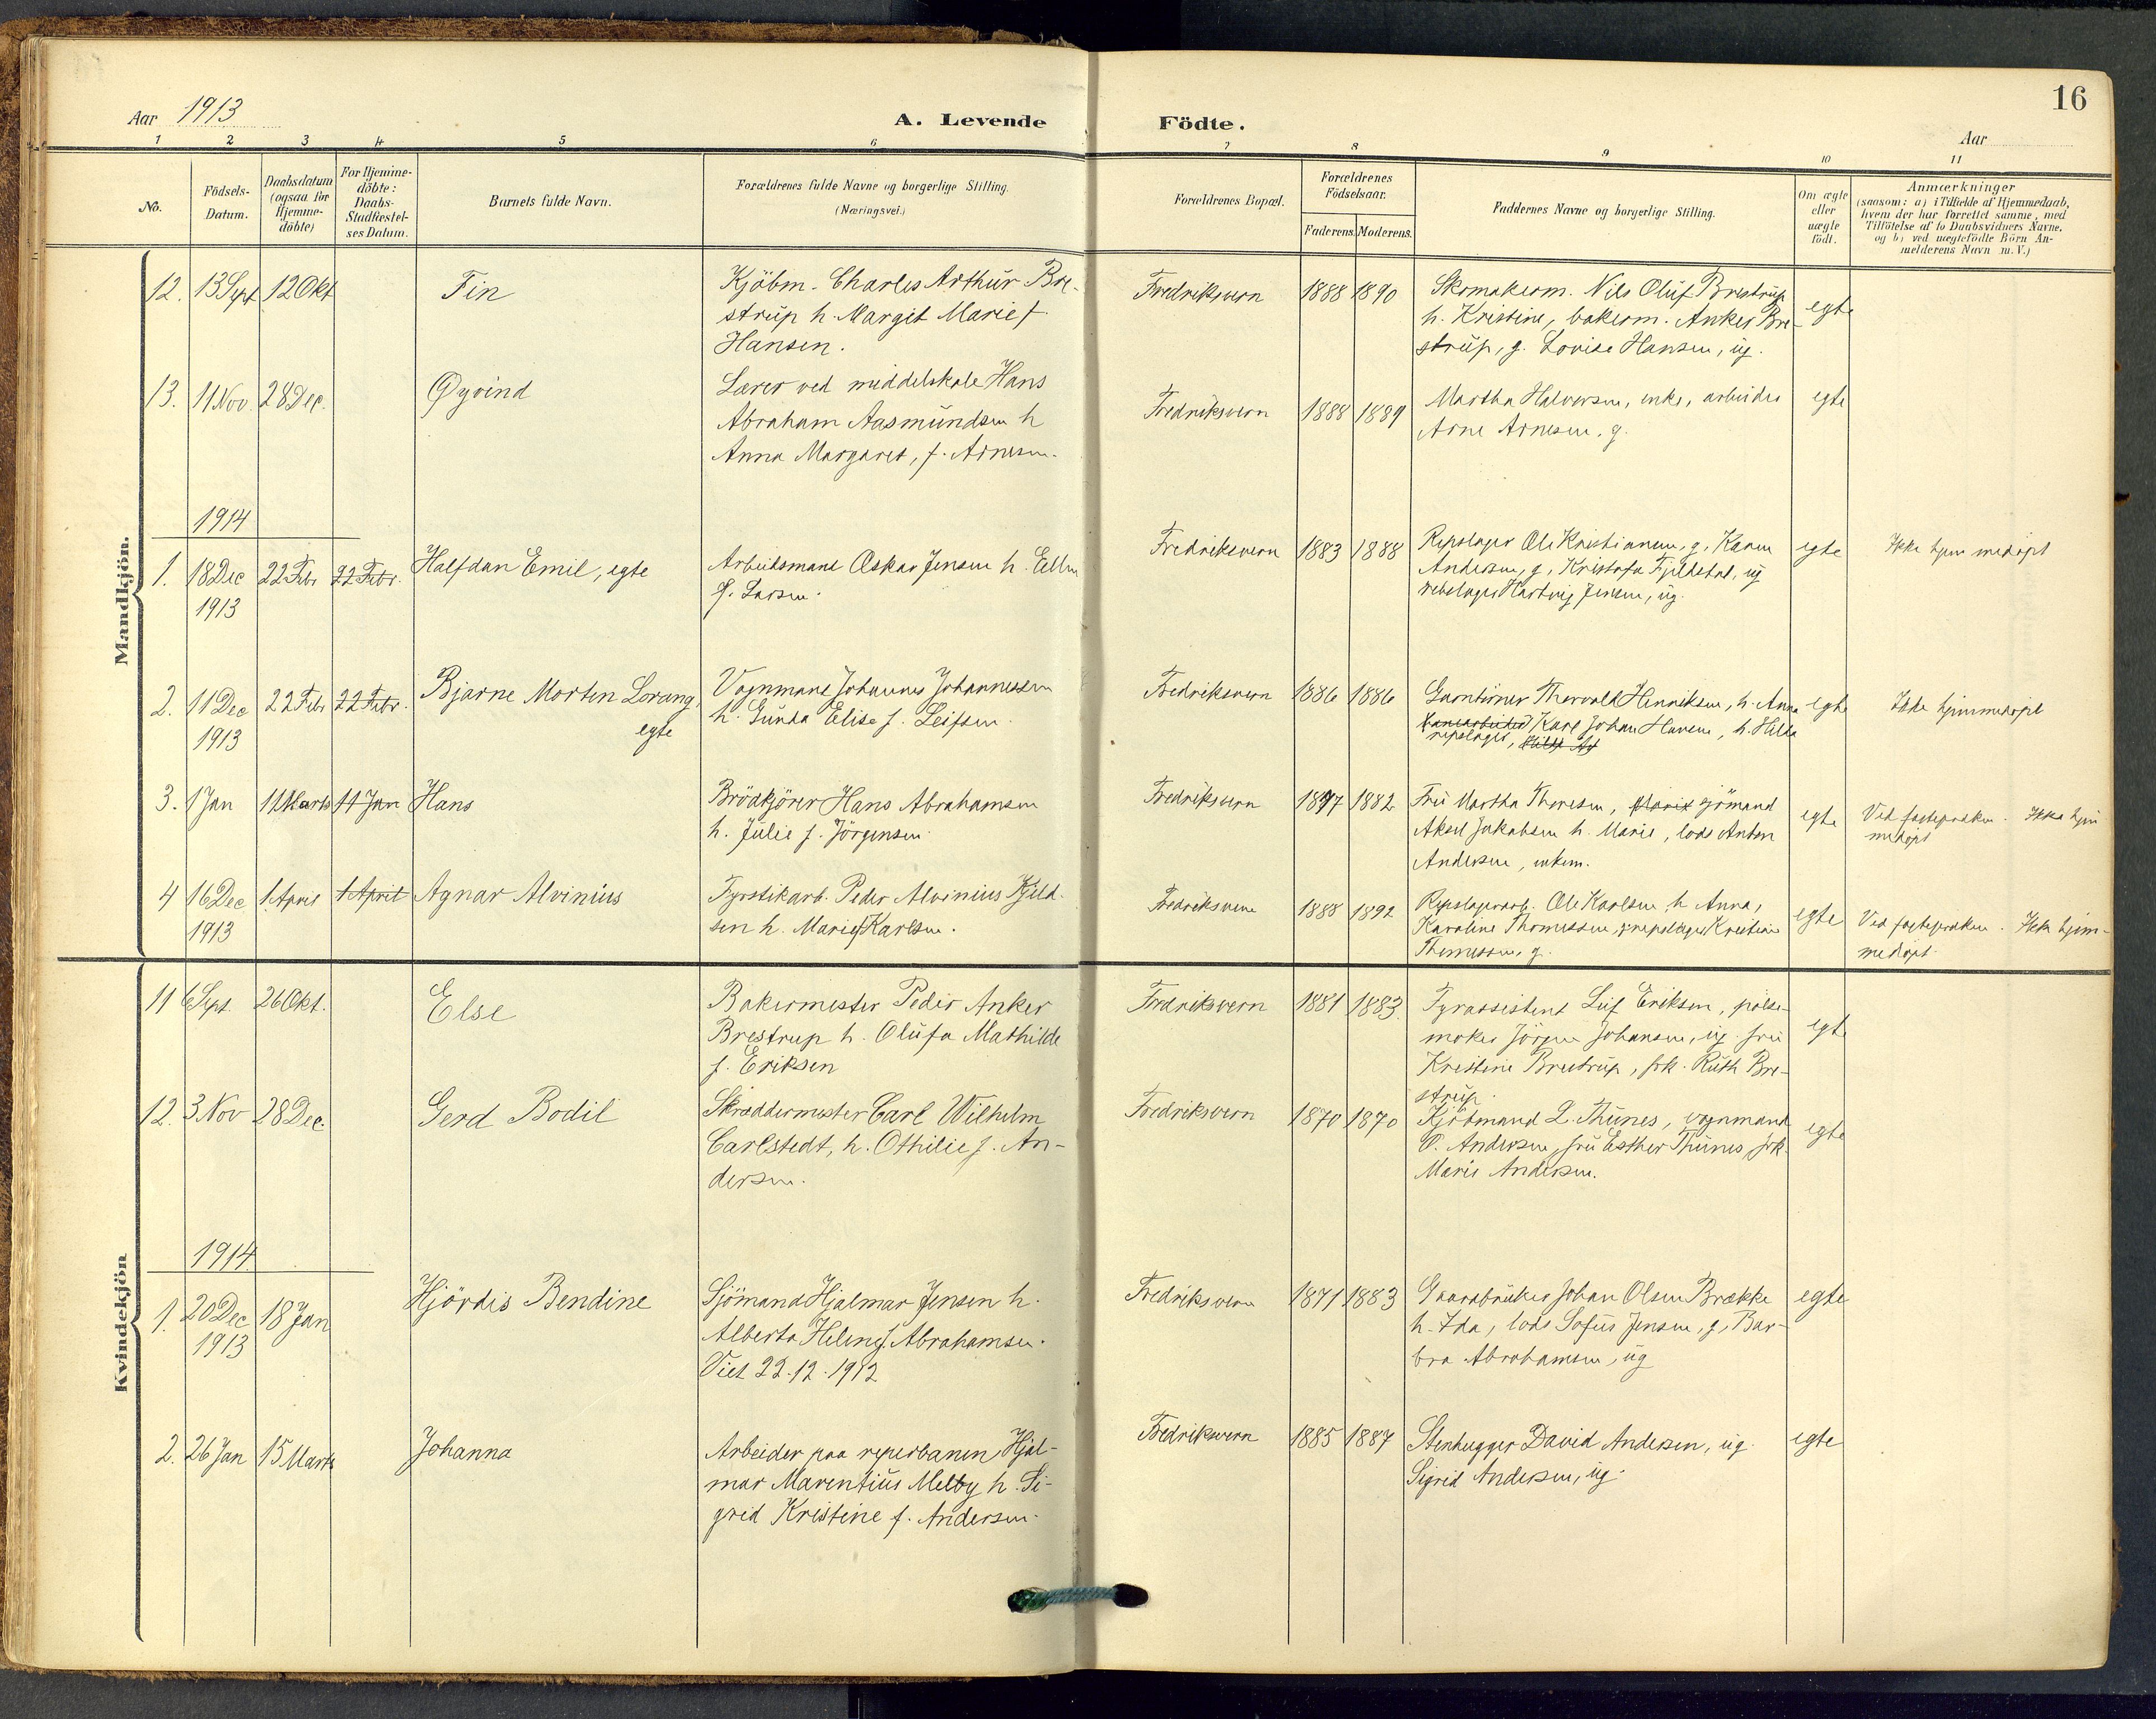 16
Aar 1913
A. Levende
Födte.
Aar
1 2 3 4 5 6 7 8 9 10 11
No.
Födsels-
Datum.
Daabsdatum
(ogsaa for
Hjemme-
döbte)
For Hjemme-
döbte:
Daabs-
Stadfæstel-
ses Datum.
Barnets fulde Navn.
Forældrenes fulde Navne og borgerlige Stilling.
(Næringsvei.)
Forældrenes Bopæl.
Forældrenes
Födselsaar.
Faderens. Moderens.
Faddernes Navne og borgerlige Stilling.
Om ægte
eller
uægte
födt.
Anmærkninger
(saasom: a) i Tilfælde af Hjemmedaab,
hvem der har forrettet samme, med
Tilföielse af to Daabsvidners Navne,
og b) ved uægtefödte Börn An-
melderens Navn m. V.)
Mandkjön.
12. 13 Sept 12 Okt
Fin
Kjöbm. Charles Arthur Bre-
strup h. Margit Marie f.
Hansen.
Fredriksvern
1888 1890
Skomakerm. Nils Oluf Brestrup
h. Kristine, bakerm. Anker Bre-
strup, g. Lovise Hansen, ug.
egte
13. 11 Nov. 28 Dec.
Øyvind
Lærer ved middelskole Hans
Abraham Aasmundsen h
Anna Margaret, f. Arnesen.
Fredriksvern
1888 1889
Martha Halvorsen, enke, arbeider
Arne Arnesen, g.
egte
1914
1. 18 Dec 22 Febr 22 Febr.
1913
Halfdan Emil, egte
Arbeidsmand Oskar Jensen h. Ellen
f. Larsen.
Fredriksvern
1883 1888
Repslager Ole Kristiansen, g, Karen
Andersen, g, Kristofa Fjeldstad, ug
rebslager Hartvig Jensen, ug.
egte
Ikke hjemmedøpt
2. 11 Dec 22 Febr 22 Febr.
1913
Bjarne Morten Lorang,
egte
Vognmand Johannes Johannessen
h. Gunda Elise f. Leifsen.
Fredriksvern
1886 1886
Garntörner Thorvald Henriksen, h. Anna
Karl Johan Hansen, h. Hilda
repslager,
egte
Ikke hjemmedøpt
3. 1 Jan 11 Marts 11 Jan
Hans
Brödkjörer Hans Abrahamsen
h. Julie f. Jörgensen.
Fredriksvern
1877 1882
Fru Martha Thoresen, Marie sjömand
Aksel Jakobsen h. Marie, lods Anton
Andersen, enkem.
egte
Ved fogteprøken. Ikke hjem
medøpt
4 16 Dec 1 April 1 April
1913
Agnar Alvinius
Fyrstikarb. Peder Alvinius Kjeld-
sen h. Marie f Karlsen.
Fredriksvern
1888 1892
Repslagerarb. Ole Karlsen h. Anna,
Karoline Thomessen, g repslager Kristian
Thomessen, g.
egte
Ved fogteprøken. Ikke hjem-
medøpt.
Kvindekjön
11 6 Sept. 26 Okt.
Else
Bakermester Peder Anker
Brestrup h. Olufa Mathilde
f. Eriksen
Fredriksvern
1881 1883.
Fyrassistent Leif Eriksen, pölse-
maker Jörgen Johansen, ug. fru
Kristine Brestrup, frk. Ruth Bre-
strup.
egte
12. 3 Nov 28 Dec.
Gerd Bodil
Skræddermester Carl Wilhelm
Carlstedt, h. Othilie f. An-
dersen.
Fredriksvern
1870 1870
Kjöbmand L. Thunes, vognmand
O. Andersen, fru Esther Thunes, frk.
Marie Andersen.
egte
1914
1. 20 Dec 18 Jan
1913
Hjördis Bendine
Sjömand Hjalmar Jensen h.
Alberta Helene f. Abrahamsen.
Viet 22.12.1912
Fredriksvern
1871 1883
Gaardbruker Johan Olsen Brække
h. Ida, lods Sofus Jensen, g, Bar-
bra Abrahamsen, ug
egte
2. 26 Jan 15 Marts
Johanna
Arbeider paa reperbanen Hjal-
mar Marentius Melby h. Si-
grid Kristine f. Andersen.
Fredriksvern
1885 1887
Stenhugger David Andersen, ug.
Sigrid Andersen, ug.
egte